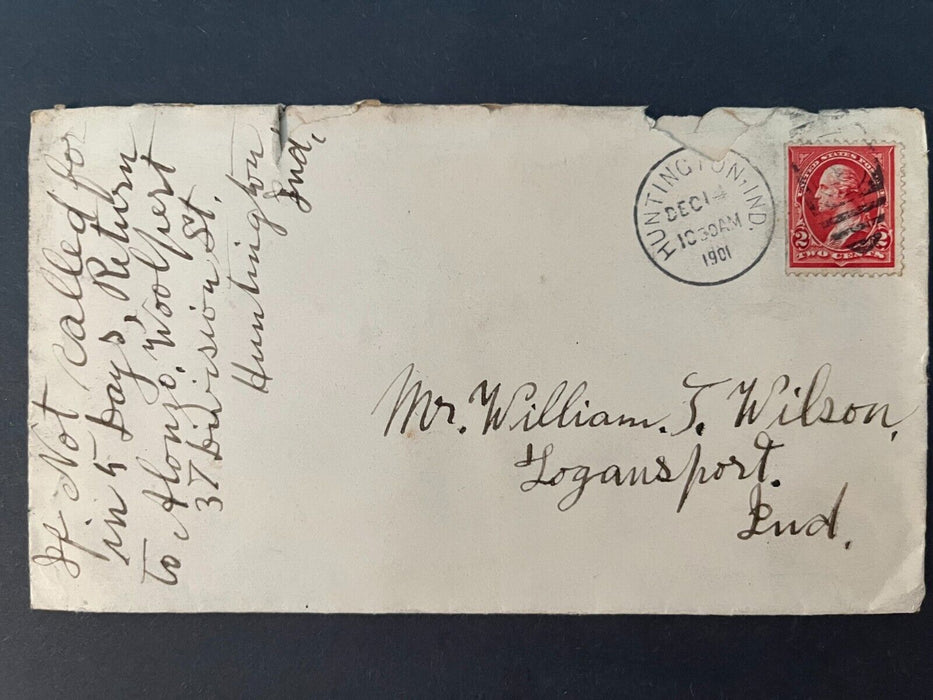 If Not Called for
in 5 Days, Return
to Alonzo, Woolpert
37 Division St.
Huntington
Ind,
HUNTINGTON, IND.
DEC 14
10 30 AM
1901
UNITED STATES
2 2
TWO CENTS
Mr. William. T. Wilson,
Logansport.
Ind.